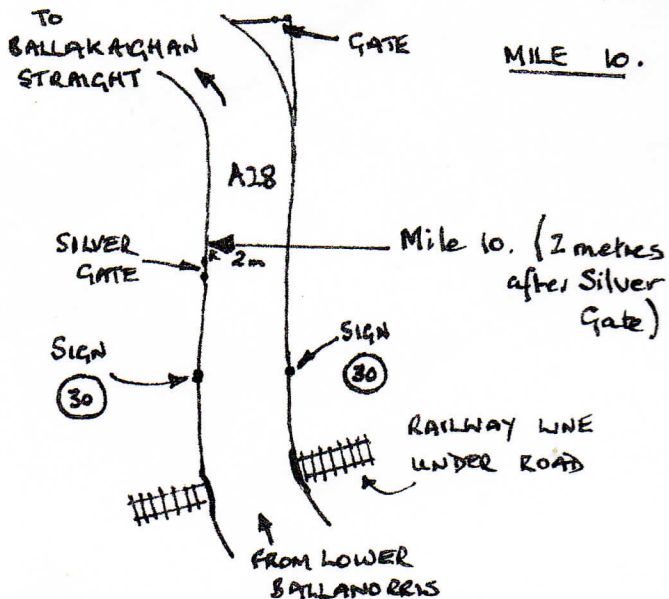 TO
BALLAKAIGHAN
STRAIGHT
GATE
MILE 10.
A28
SILVER
GATE
2m
Mile 10. (2 metres
after Silver
Gate)
SIGN
30
SIGN
30
RAILWAY LINE
UNDER ROAD
FROM LOWER
BALLANORRIS